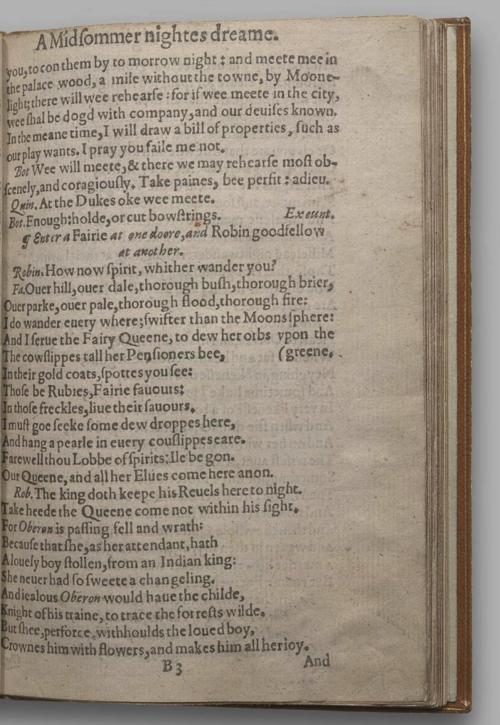 A Midſommer nightes dreame.
you, to con them by to morrow night: and meete mee in
the palace wood, a mile without the towne, by Moone-
light; there will wee rehearſe: for if wee meete in the city,
wee ſhal be dogd with company, and our deuiſes known.
In the meane time, I will draw a bill of properties, ſuch as
our play wants. I pray you faile me not.
Bot Wee will meete, & there we may rehearſe moſt ob-
ſcenely, and coragiouſly. Take paines, bee perfit: adieu.
Quin. At the Dukes oke wee meete.
Bot. Enough: holde, or cut bowſtrings. Exeunt.
¶ Enter a Fairie at one doore, and Robin goodfellow
at another.
Robin. How now ſpirit, whither wander you?
Fa. Ouer hill, ouer dale, thorough buſh, thorough brier,
Ouer parke, ouer pale, thorough flood, thorough fire:
I do wander euery where; ſwifter than the Moons ſphere:
And I ſerue the Fairy Queene, to dew her orbs vpon the
The cowſlippes tall her Penſioners bee, (greene.
In their gold coats, ſpottes you ſee:
Thoſe be Rubies, Fairie fauours:
In thoſe freckles, liue their ſauours.
I muſt goe ſeeke ſome dew droppes here,
And hang a pearle in euery couſlippes eare.
Farewell thou Lobbe of ſpirits: Ile be gon.
Our Queene, and all her Elues come here anon.
Rob. The king doth keepe his Reuels here to night.
Take heede the Queene come not within his ſight.
For Oberon is paſſing fell and wrath:
Becauſe that ſhe, as her attendant, hath
A louely boy ſtollen, from an Indian king:
She neuer had ſo ſweete a changeling.
And iealous Oberon would haue the childe,
Knight of his traine, to trace the forreſts wilde.
But ſhee, perforce, withhoulds the loued boy,
Crownes him with flowers, and makes him all her ioy.
B 3 And